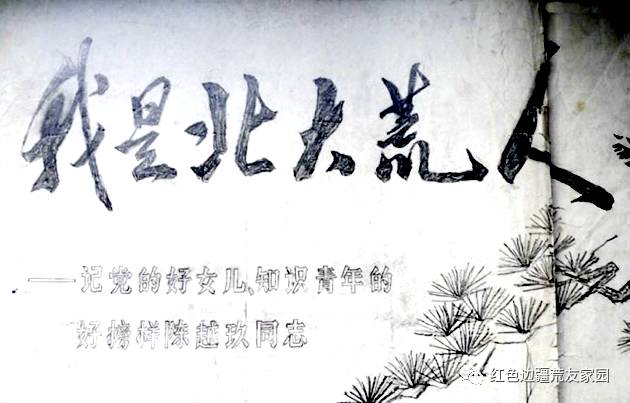 我是北大荒人
——记党的好女儿、知识青年的
好榜样陈越玖同志
红色边疆荒友家园